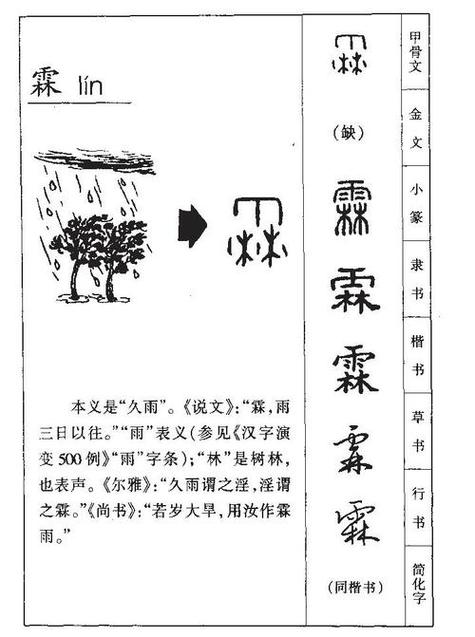 霖 lín
本义是“久雨”。《说文》:“霖,雨
三日以往。”“雨”表义(参见《汉字演
变500例》“雨”字条);“林”是树林,
也表声。《尔雅》:“久雨谓之淫,淫谓
之霖。”《尚书》:“若岁大旱,用汝作霖
雨。”
霖 甲骨文
(缺) 金文
霖 小篆
霖 隶书
霖 楷书
霖 草书
霖 行书
(同楷书) 简化字